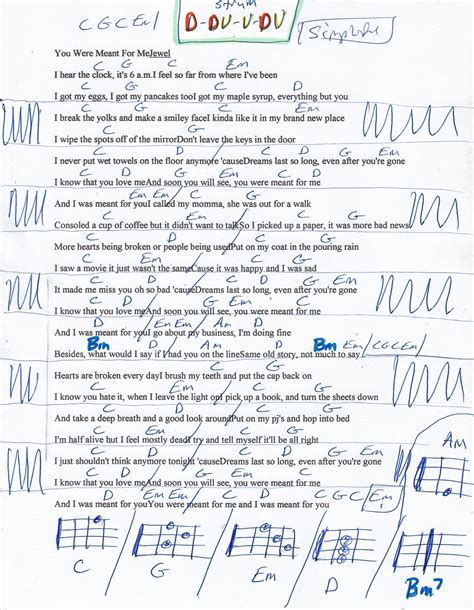 Strum
C G C Em/ D-DU-U-DU Simplude
You Were Meant For MeJewel
C G C Em
I hear the clock, it's 6 a.m.I feel so far from where I've been
C G C D
I got my eggs, I got my pancakes tooI got my maple syrup, everything but you
C G C Em
I break the yolks and make a smiley faceI kinda like it in my brand new place
C G C D
I wipe the spots off of the mirrorDon't leave the keys in the door
C G C Em
I never put wet towels on the floor anymore 'causeDreams last so long, even after you're gone
C D C G
I know that you love meAnd soon you will see, you were meant for me
C D Em Em C G
And I was meant for youI called my momma, she was out for a walk
C Em C G
Consoled a cup of coffee but it didn't want to talkSo I picked up a paper, it was more bad news
C D C G
More hearts being broken or people being usedPut on my coat in the pouring rain
C Em C G
I saw a movie it just wasn't the sameCause it was happy and I was sad
C D C Em
It made me miss you oh so bad 'causeDreams last so long, even after you're gone
C D C G
I know that you love meAnd soon you will see, you were meant for me
C D Em Em Am D
And I was meant for youI go about my business, I'm doing fine
Bm D Am D Bm Em/CGCEm/
Besides, what would I say if I had you on the lineSame old story, not much to say
C G C Em
Hearts are broken every dayI brush my teeth and put the cap back on
C G C D
I know you hate it, when I leave the light onI pick up a book, and turn the sheets down
C G C Em
And take a deep breath and a good look aroundPut on my pj's and hop into bed
C G C D
I'm half alive but I feel mostly deadI try and tell myself it'll be all right
C G C Em
I just shouldn't think anymore tonight 'causeDreams last so long, even after you're gone
C D C G
I know that you love meAnd soon you will see, you were meant for me
C D Em Em C D C G C Em
And I was meant for youYou were meant for me and I was meant for you
Am
C G Em D Bm7